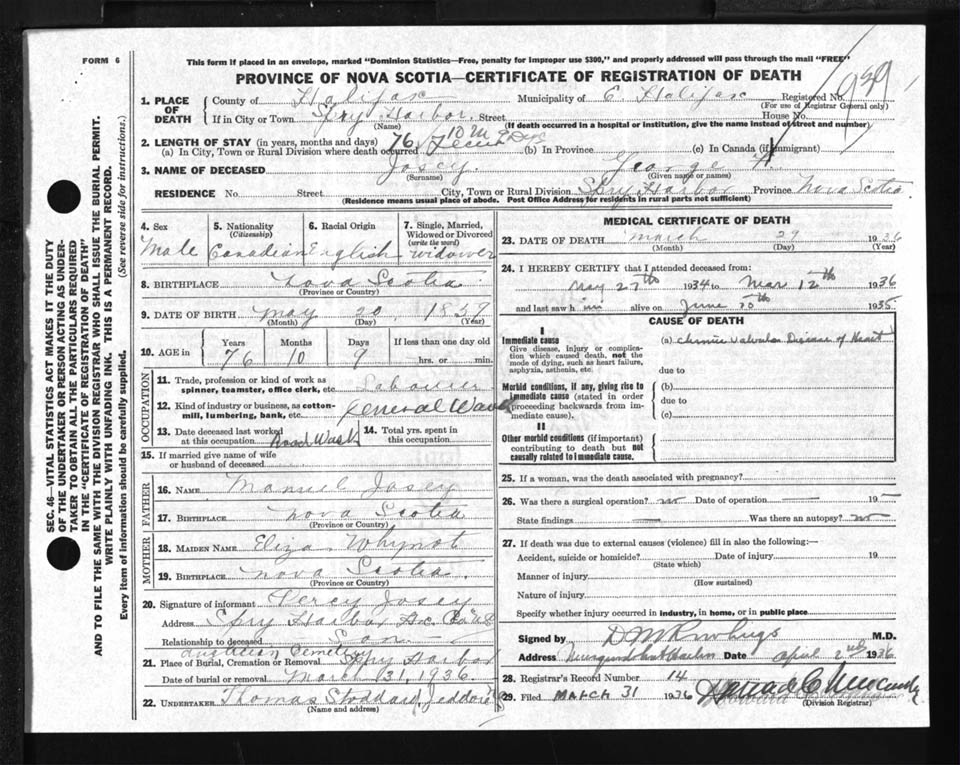 FORM 6
This form if placed in an envelope, marked "Dominion Statistics—Free, penalty for improper use $300," and properly addressed will pass through the mail "FREE"
PROVINCE OF NOVA SCOTIA—CERTIFICATE OF REGISTRATION OF DEATH
1. PLACE OF DEATH County of Halifax Municipality of E. Halifax Registered No.
(For use of Registrar General only)
If in City or Town Spry Harbor Street House No.
(Name) (If death occurred in a hospital or institution, give the name instead of street and number)
2. LENGTH OF STAY (in years, months and days) 76 Years 10 M 9 Dys
(a) In City, Town or Rural Division where death occurred (b) In Province (c) In Canada (if immigrant)
3. NAME OF DECEASED Josey George
(Surname) (Given name or names)
RESIDENCE No. Street City, Town or Rural Division Spry Harbor Province Nova Scotia
(Residence means usual place of abode. Post Office Address for residents in rural parts not sufficient)
4. Sex 5. Nationality (Citizenship) 6. Racial Origin 7. Single, Married, Widowed or Divorced (write the word)
Male Canadian English Widower
8. BIRTHPLACE Nova Scotia
(Province or Country)
9. DATE OF BIRTH May 20 1859
(Month) (Day) (Year)
10. AGE in Years Months Days If less than one day old
76 10 9 hrs. or min.
OCCUPATION
11. Trade, profession or kind of work as spinner, teamster, office clerk, etc. Labourer
12. Kind of industry or business, as cotton-mill, lumbering, bank, etc. General Work
13. Date deceased last worked at this occupation Road Work 14. Total yrs. spent in this occupation
15. If married give name of wife or husband of deceased
FATHER
16. NAME Manuel Josey
17. BIRTHPLACE Nova Scotia
(Province or Country)
MOTHER
18. MAIDEN NAME Eliza Whynot
19. BIRTHPLACE Nova Scotia
(Province or Country)
20. Signature of informant Percy Josey
Address Spry Harbor Hx. Co. N.S
Relationship to deceased Son
Anglican Cemetery
21. Place of Burial, Cremation or Removal Spry Harbor
Date of burial or removal March 31, 1936
22. UNDERTAKER Thomas Stoddard, Jeddore
(Name and address)
MEDICAL CERTIFICATE OF DEATH
23. DATE OF DEATH March 29 1936
(Month) (Day) (Year)
24. I HEREBY CERTIFY that I attended deceased from:
May 27th 1934 to Mar 12th 1936
and last saw him alive on June 1935.
CAUSE OF DEATH
I
Immediate cause
Give disease, injury or complication which caused death, not the mode of dying, such as heart failure, asphyxia, asthenia, etc.
(a) Chronic Valvular Disease of Heart
due to
Morbid conditions, if any, giving rise to immediate cause (stated in order proceeding backwards from immediate cause).
(b)
due to
(c)
II
Other morbid conditions (if important) contributing to death but not causally related to immediate cause.
25. If a woman, was the death associated with pregnancy?
26. Was there a surgical operation? no Date of operation 19
State findings Was there an autopsy? no
27. If death was due to external causes (violence) fill in also the following:—
Accident, suicide or homicide? Date of injury 19
(State which)
Manner of injury
(How sustained)
Nature of injury
Specify whether injury occurred in industry, in home, or in public place
Signed by M.D.
Address Date April 2nd 1936
28. Registrar's Record Number 14
29. Filed MARCH 31 1936
(Division Registrar)
SEC. 46—VITAL STATISTICS ACT MAKES IT THE DUTY
OF THE UNDERTAKER OR PERSON ACTING AS UNDER-
TAKER TO OBTAIN ALL THE PARTICULARS REQUIRED
IN THE "CERTIFICATE OF REGISTRATION OF DEATH"
AND TO FILE THE SAME WITH THE DIVISION REGISTRAR WHO SHALL ISSUE THE BURIAL PERMIT.
WRITE PLAINLY WITH UNFADING INK. THIS IS A PERMANENT RECORD.
Every item of information should be carefully supplied. (See reverse side for instructions.)